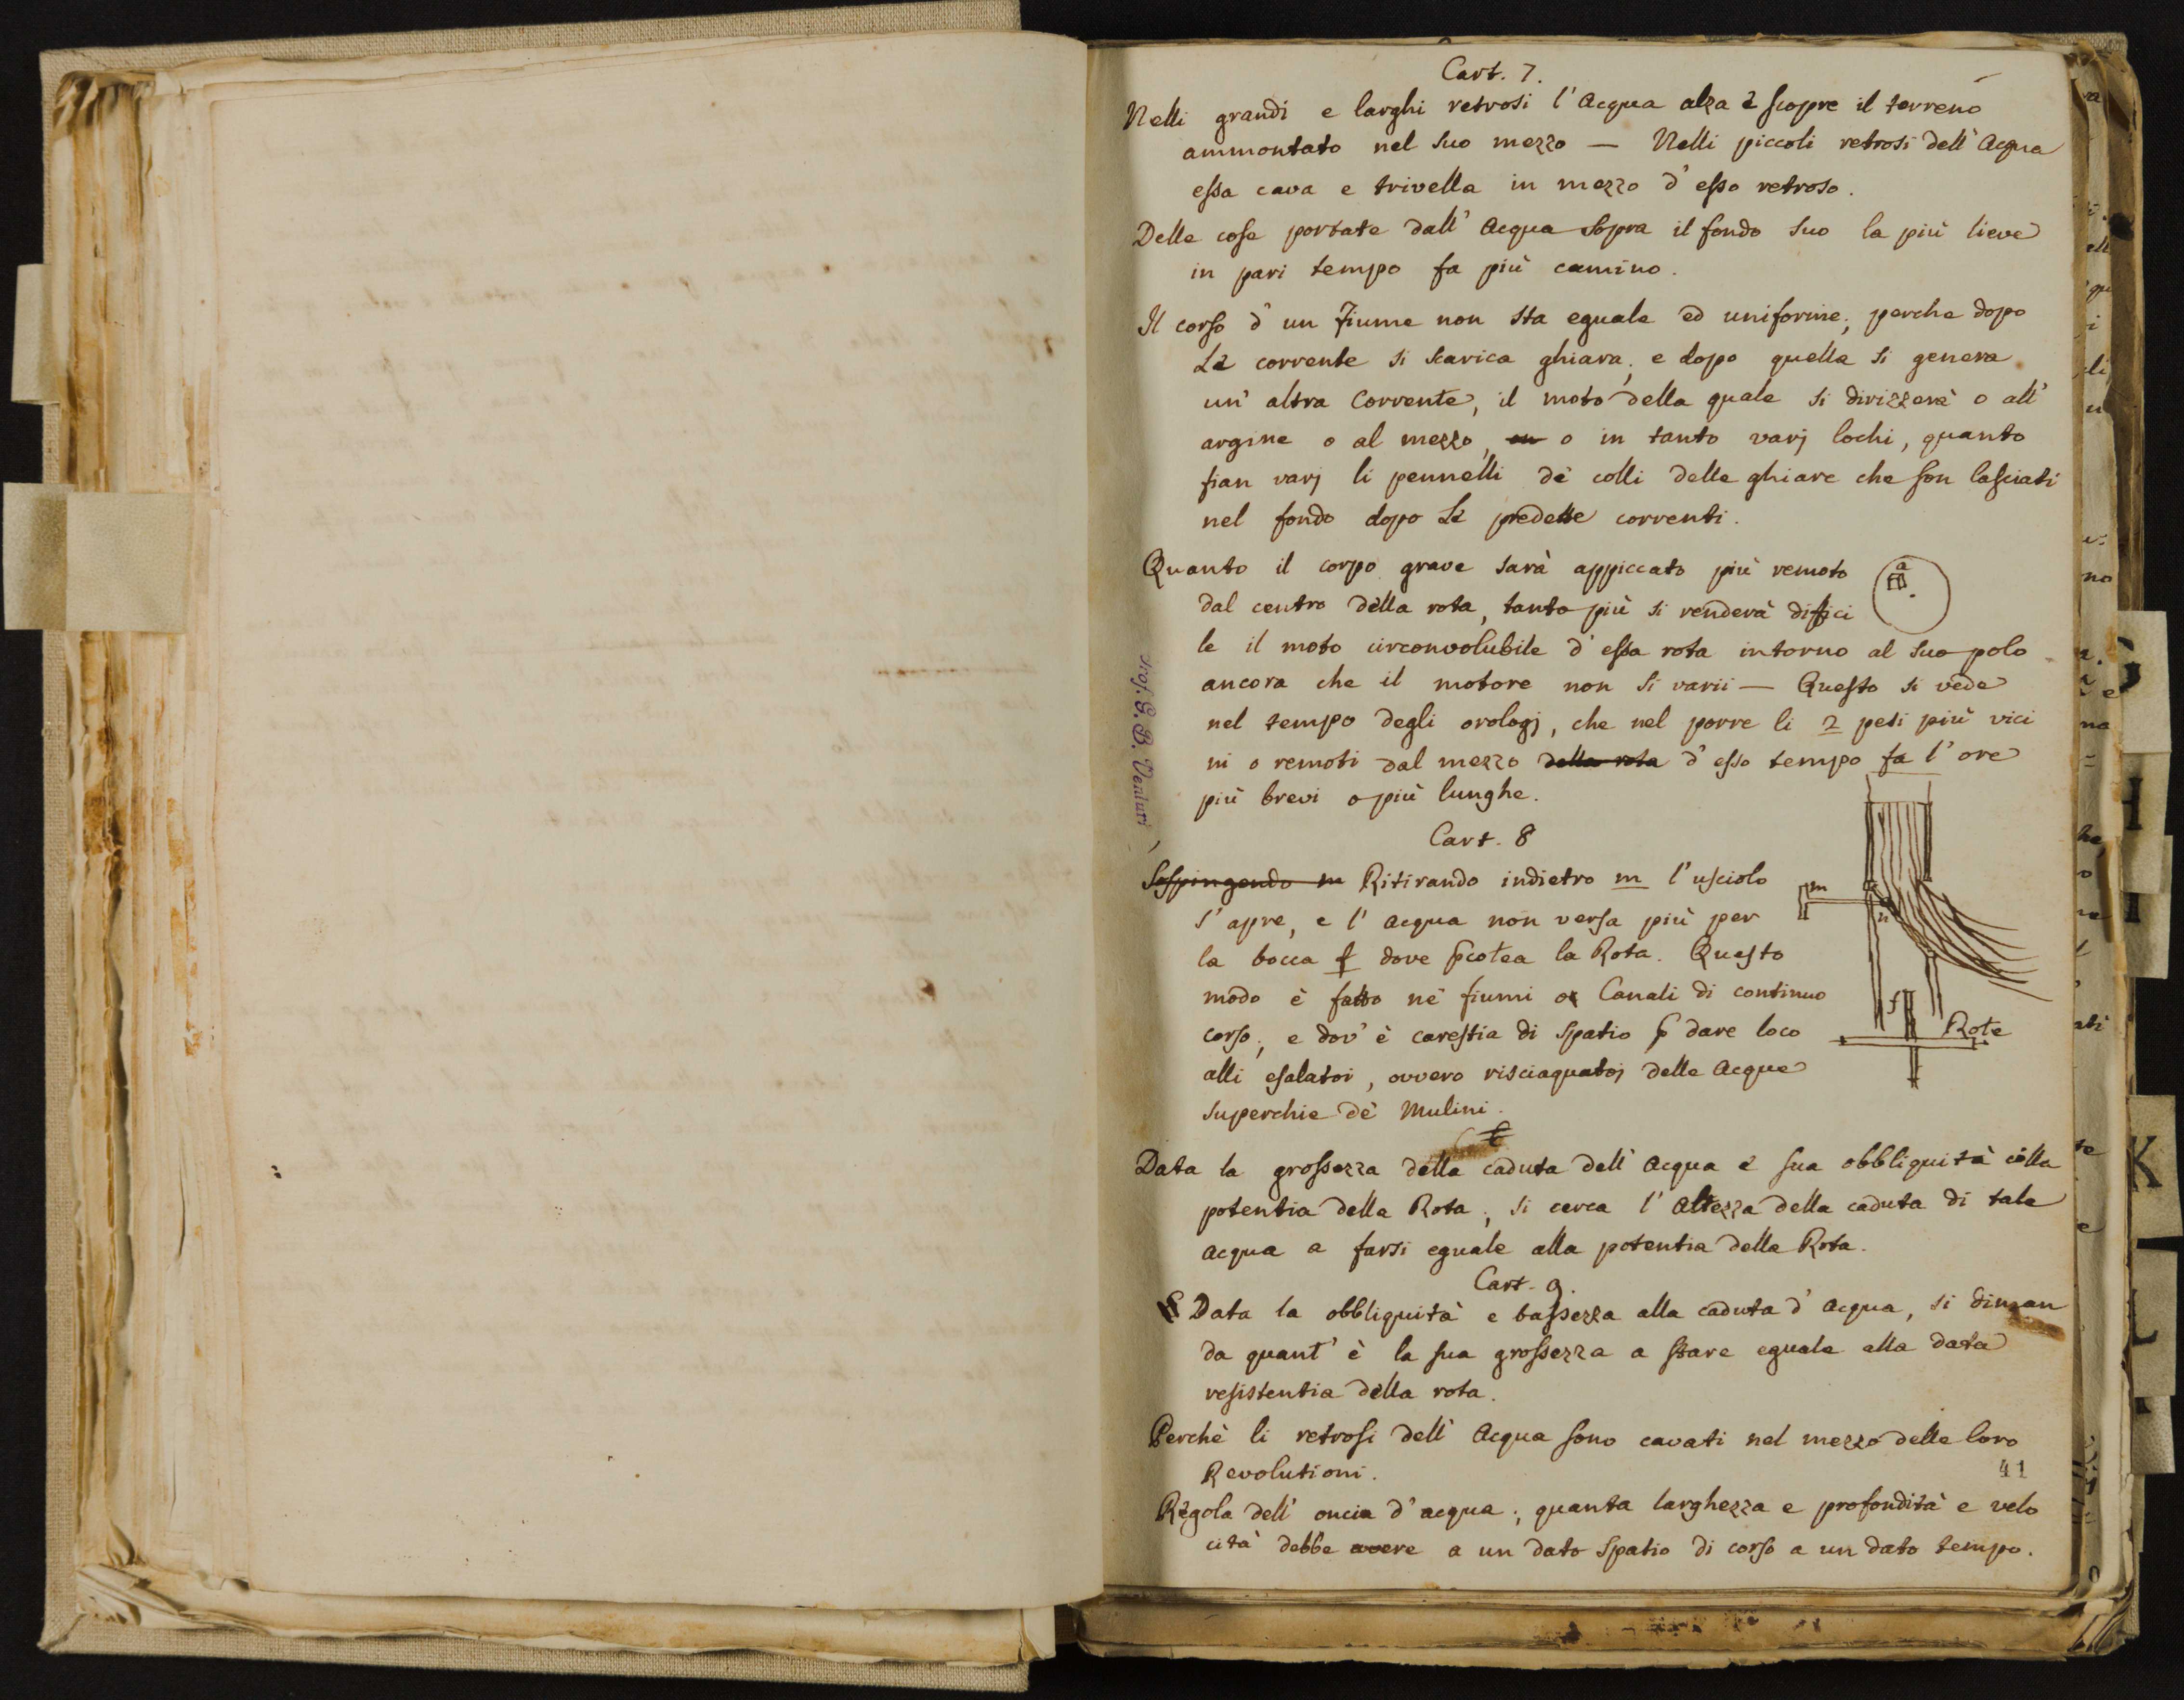 Cart. 7.
Nelli grandi e larghi retrosi l' Acqua alza e scopre il terreno
ammontato nel suo mezzo — Nelli piccoli retrosi dell' Acqua
essa cava e trivella in mezzo d' esso retroso.
Delle cose portate dall' Acqua sopra il fondo suo la più lieve
in pari tempo fa più camino.
Il corso d' un Fiume non sta eguale ed uniforme; perche dopo
La corrente si scarica ghiara; e dopo quella si genera
un' altra Corrente, il moto della quale si dirizzerà o all'
argine o al mezzo, o in tanto varj lochi, quanto
fian varj li pennelli de' colli delle ghiare che son lasciati
nel fondo dopo Le predette correnti.
Quanto il corpo grave sarà appiccato più remoto
a
dal centro della rota, tanto più si renderà diffici
le il moto circonvolubile d' essa rota intorno al suo polo
ancora che il motore non si varii — Questo si vede
nel tempo degli orologj, che nel porre li 2 pesi più vici
ni o remoti dal mezzo della rota d' esso tempo fa l' ore
più brevi o più lunghe.
Cart. 8
Sospingendo m Ritirando indietro m l' usciolo
s' apre, e l' acqua non versa più per
la bocca f dove pcotea la Rota. Questo
modo è fatto ne' fiumi o Canali di continuo
corso; e dov' è carestia di spatio p dare loco
alli esalatoi, ovvero risciaquatoj delle Acque
superchie de' Mulini.
m
n
f
Rote
Data la grossezza della caduta dell' Acqua e sua obbliquità colla
potentia della Rota; si cerca l' Altezza della caduta di tale
acqua a farsi eguale alla potentia della Rota.
Cart. 9.
Data la obbliquità e bassezza alla caduta d' acqua, si diman
da quant' è la sua grossezza a stare eguale alla data
resistentia della rota.
Perchè li retrosi dell' Acqua sono cavati nel mezzo delle loro
Revolutioni.
41
Regola dell' oncia d' acqua; quanta larghezza e profondità e velo
cità debbe avere a un dato spatio di corso a un dato tempo.
Prof. G. B. Venturi
K